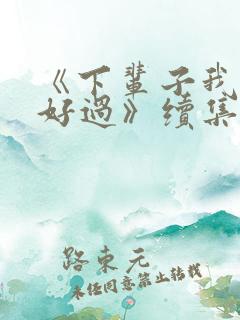 《下輩子我
好過》續集
路東元
未經同意禁止轉載